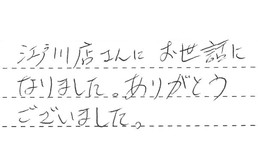 江戸川店さんに お世話に
なりました。ありがとう
ございました。